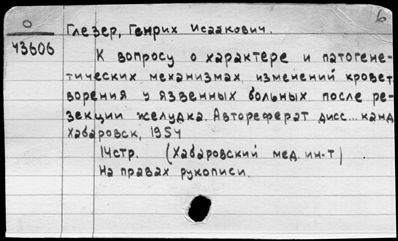 О
43606
Глезер, Генрих Исаакович.
К вопросу о характере и патогене-
тических механизмах изменений кровет
ворения у язвенных больных после ре-
зекции желудка. Автореферат дисс... канд
Хабаровск, 1954
14стр. (Хабаровский мед. ин-т)
На правах рукописи.